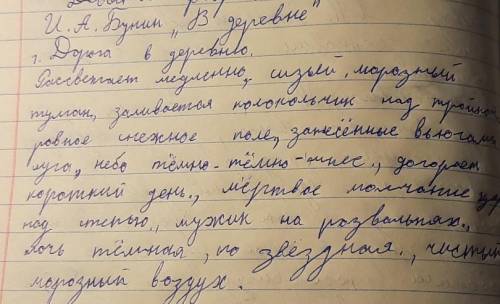 И. А. Бунин „В деревне"
1. Дорога в деревню.
Рассветает медленно, сизый, морозный
туман, заливается колокольчик над тройкой,
ровное снежное поле, занесённые вьюгами
луга, небо тёмно-тёмно-синее., догорает
короткий день., мёртвое молчание
над степью., мужик на розвальнях.,
ночь тёмная, но звёздная., чистый
морозный воздух.